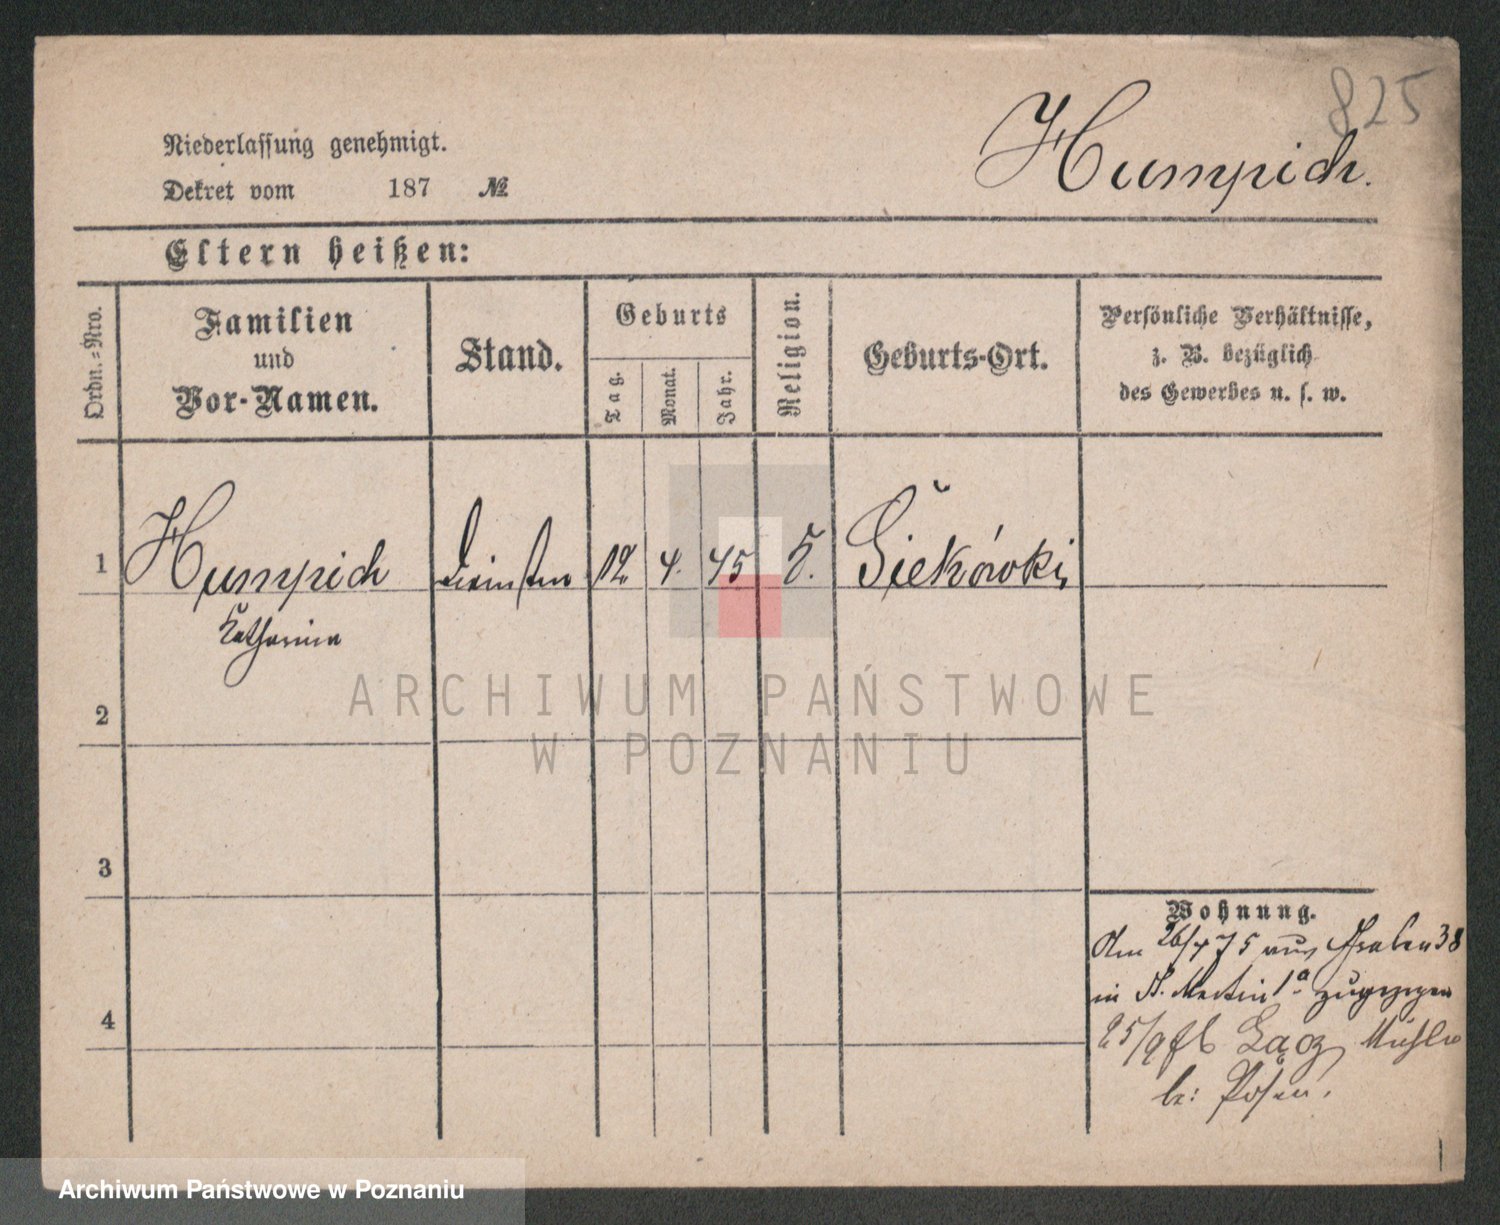 825
Humpich.
Niederlassung genehmigt.
Dekret vom 187 №
Eltern heißen:
Ordn.=Nro.
Familien
und
Vor-Namen.
Stand.
Geburts
Tag.
Monat.
Jahr.
Religion.
Geburts-Ort.
Persönliche Verhältnisse,
z. B. bezüglich
des Gewerbes u. s. w.
1 Humpich 12 4. 45 K. Siekówki
Katharina
2
3
4
Wohnung.
Am 26/4 75 aus Graben 38
in St. Martin 1a zugezogen
25/9 Łącz Mühle
bei Posen.
ARCHIWUM PAŃSTWOWE
W POZNANIU
Archiwum Państwowe w Poznaniu